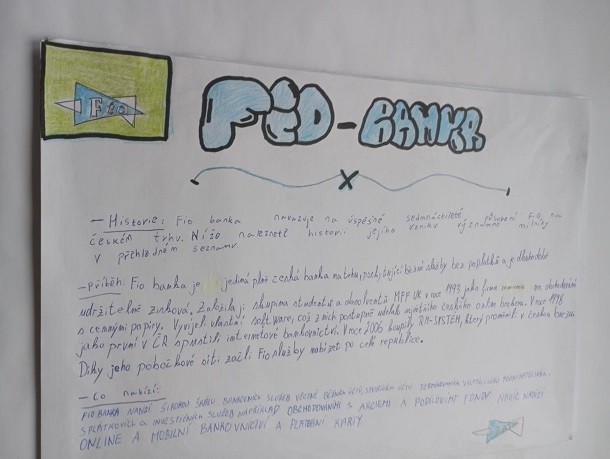 Fio
FiO-BANKA
- Historie: Fio banka navazuje na úspěšné sedmnáctileté působení Fio, na
českém trhu. Níže naleznetl historii jejího vzniku významné milníky
v přehledném seznamu.
- příběh: Fio banka je jediná plně česká banka na trhu, poskytující běžné služby bez poplatků a je dlouhodobě
udržitelně zisková. Založila ji skupina studentů a absolventů MFF UK v roce 1993 jako firma na obchodování
s cennými papíry. Vyvíjeli vlastní software, což z nich postupně udělalo největšího českého onlin brokera. V roce 1998
jako první v ČR spustili internetové bankovnictví. V roce 2006 koupily RM-SYSTÉM, který proměnil v českou burzu
Díky jeho pobočkové síti začli Fio služby nabízet po celé republice.
- Co nabízí:
FIO BANKA NABÍZÍ ŠIROKOU ŠKÁLU BANKOVNÍCH SLUŽEB VČETNĚ BĚŽNÝCH ÚČTŮ, SPOŘÍCÍCH ÚČTŮ
SPLÁTKOVÝCH A INVESTIČNÍCH SLUŽEB NAPŘÍKLAD OBCHODOVÁNÍ S AKCIEMI A PODÍLOVÝMI FONDY NAVÍC NABÍZÍ
ONLINE A MOBILNÍ BANKOVNICTVÍ A PLATEBNÍ KARTY